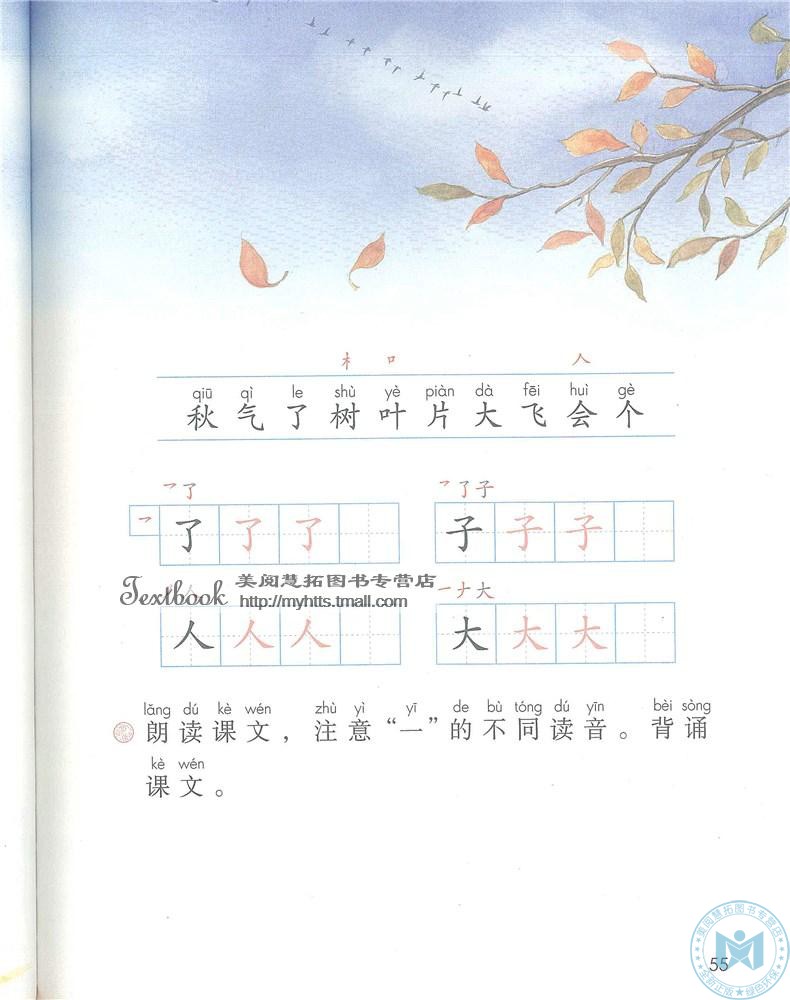 木 口 人
qiū qì le shù yè piàn dà fēi huì gè
秋 气 了 树 叶 片 大 飞 会 个
㇇了
㇇了子
㇇ 了 了 了
子 子 子
Textbook
美阅慧拓图书专营店
http://myhtts.tmall.com
一ナ大
人 人 人
大 大 大
lǎng dú kè wén zhù yì yī de bù tóng dú yīn bèi sòng
朗读课文，注意“一”的不同读音。背诵
kè wén
课文。
美阅慧拓图书专营店
全新正版 绿色环保
55